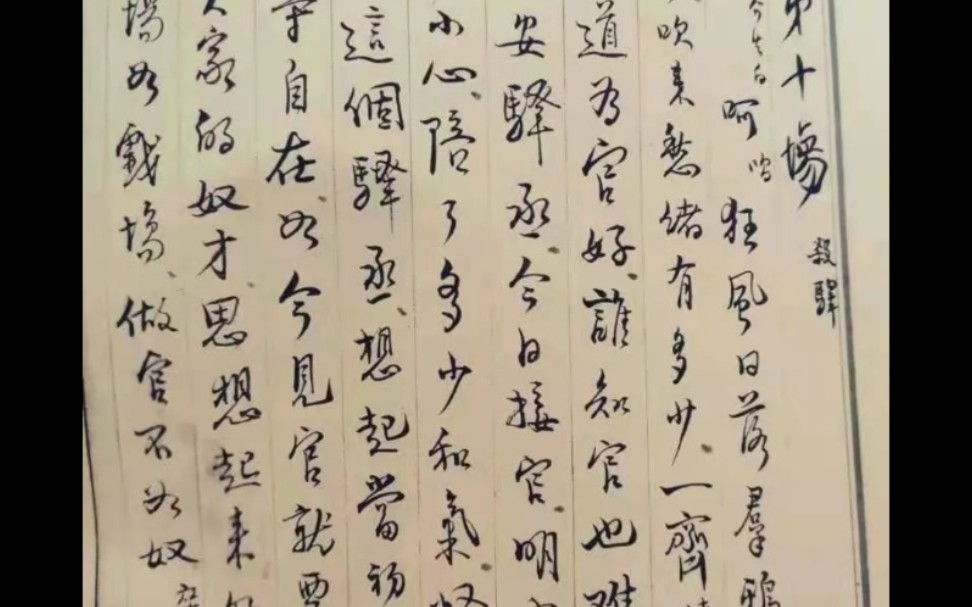 第十場 殺驛
呵 狂風日落羣鴉
吹來愁緒有多少、一齊
道為官好、誰知官也難
安驛丞、今日接官明
小心、陪了多少和氣
這個驛丞、想起當初
自在、如今見官就要
家的奴才思想起來
場如戲場、做官不如奴